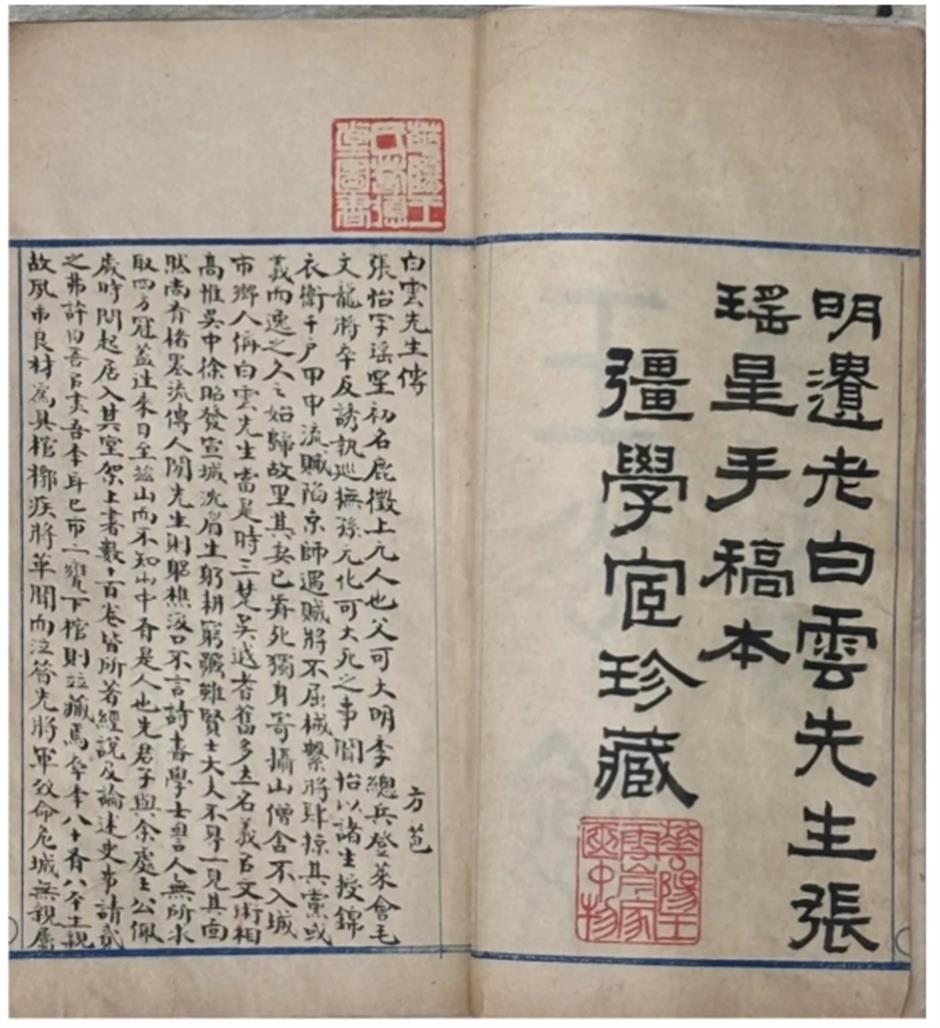 明遺老白雲先生張
瑤星手稿本
彊學宧珍藏
華陽王
白雲先生傳 方苞
張怡字瑤星初名鹿徵上元人也父可大明季總兵登萊會毛
文龍將卒反誘執巡撫孫元化可大死之事聞怡以諸生授錦
衣衛千戶甲申流賊陷京師遇賊將不屈械繫將肆掠其黨或
義而逸之久之始歸故里其妻已前死獨身寄攝山僧舍不入城
市鄉人稱白雲先生當是時三楚吳越耆舊多立名義以文術相
高惟吳中徐昭發宣城沈眉生躬耕窮鄉雖賢士大夫不得一見其面
然尚有楮墨流傳人間先生則躬樵汲口不言詩書學士詞人無所求
取四方冠蓋往來日至茲山而不知山中有是人也先君子與余處士公佩
歲時問起居入其室架上書數十百卷皆所著經說及論述史事請貳
之弗許曰吾以盡吾年耳已市二甕下棺則並藏焉卒年八十有八平生親
故夙市良材為具棺槨疾將革聞而泣曰昔先將軍致命危城無親屬